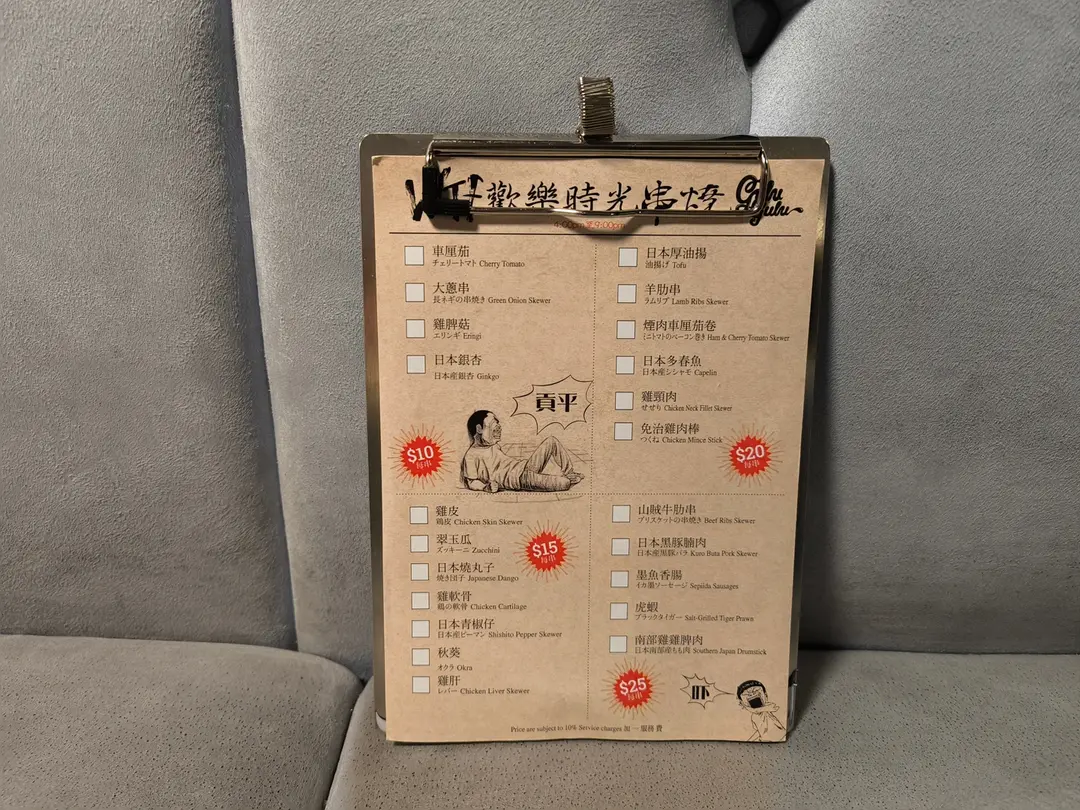 歡樂時光串燒
Gulu Gulu
車厘茄
チェリートマト Cherry Tomato
大蔥串
長ネギの串焼き Green Onion Skewer
雞脾菇
エリンギ Eringi
日本銀杏
日本産銀杏 Ginkgo
貢平
$10
每串
日本厚油揚
油揚げ Tofu
羊肋串
ラムリブ Lamb Ribs Skewer
煙肉車厘茄卷
ミニトマトのベーコン巻き Ham & Cherry Tomato Skewer
日本多春魚
日本産シシャモ Capelin
雞頸肉
せせり Chicken Neck Fillet Skewer
免治雞肉棒
つくね Chicken Mince Stick
$20
每串
雞皮
鶏皮 Chicken Skin Skewer
翠玉瓜
ズッキーニ Zucchini
$15
每串
日本燒丸子
焼き団子 Japanese Dango
雞軟骨
鶏の軟骨 Chicken Cartilage
日本青椒仔
日本産ピーマン Shishito Pepper Skewer
秋葵
オクラ Okra
雞肝
レバー Chicken Liver Skewer
山賊牛肋串
ブリスケットの串焼き Beef Ribs Skewer
日本黑豚腩肉
日本産黒豚バラ Kuro Buta Pork Skewer
墨魚香腸
イカ墨ソーセージ Sepiida Sausages
虎蝦
ブラックタイガー Salt-Grilled Tiger Prawn
南部雞雞脾肉
日本南部産もも肉 Southern Japan Drumstick
$25
每串
吓
Price are subject to 10% Service charges 加一服務費